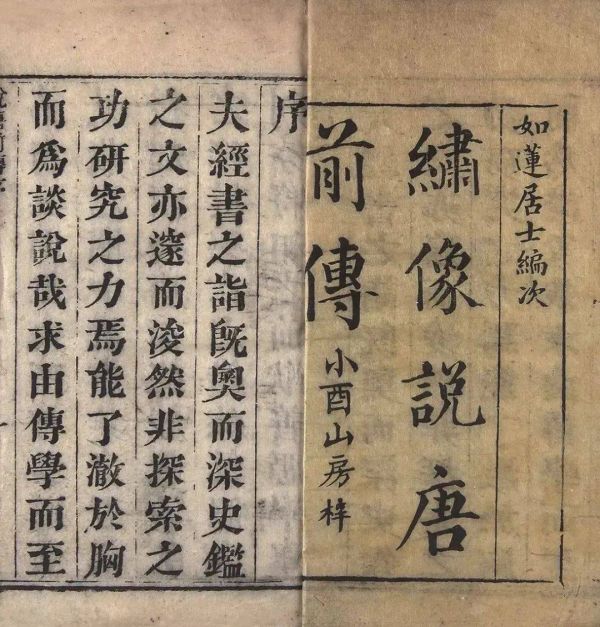 如蓮居士編次
繡像説唐
前傳
小酉山房梓
序
夫經書之詣旣奧而深史鑑
之文亦邃而浚然非探索之
功研究之力焉能了澈於胸
而爲談説哉求由傳學而至